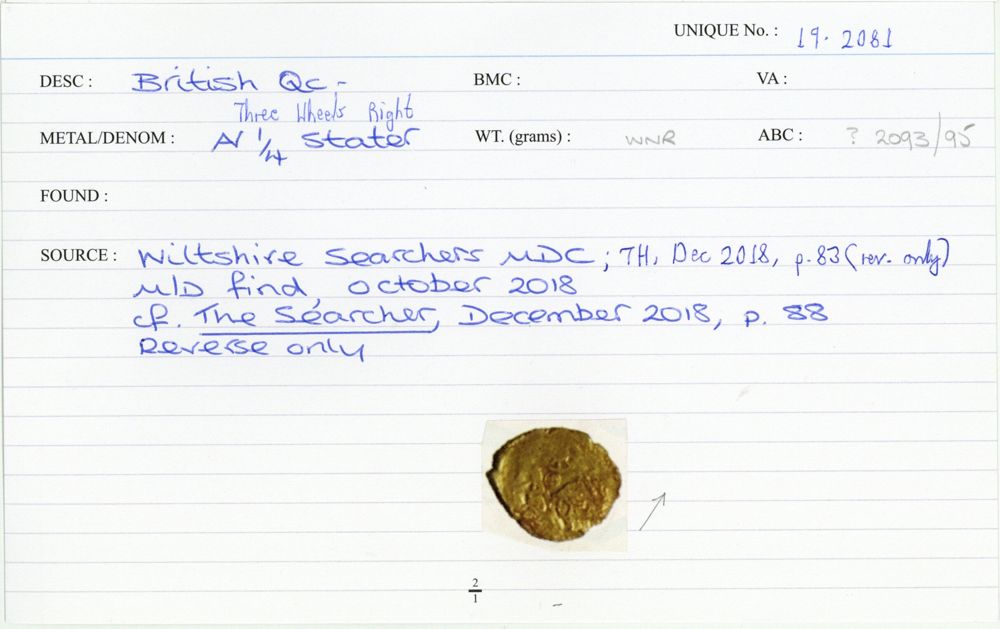 UNIQUE No. : 19. 2081
DESC : British Qc.- BMC : VA :
Three Wheels Right
METAL/DENOM : AV 1/4 Stater WT. (grams) : WNR ABC : ? 2093/95
FOUND :
SOURCE : Wiltshire Searchers MDC; TH, Dec 2018, p.83 (rev. only)
M/D find, October 2018
cf. The Searcher, December 2018, p. 88
Reverse only
2/1